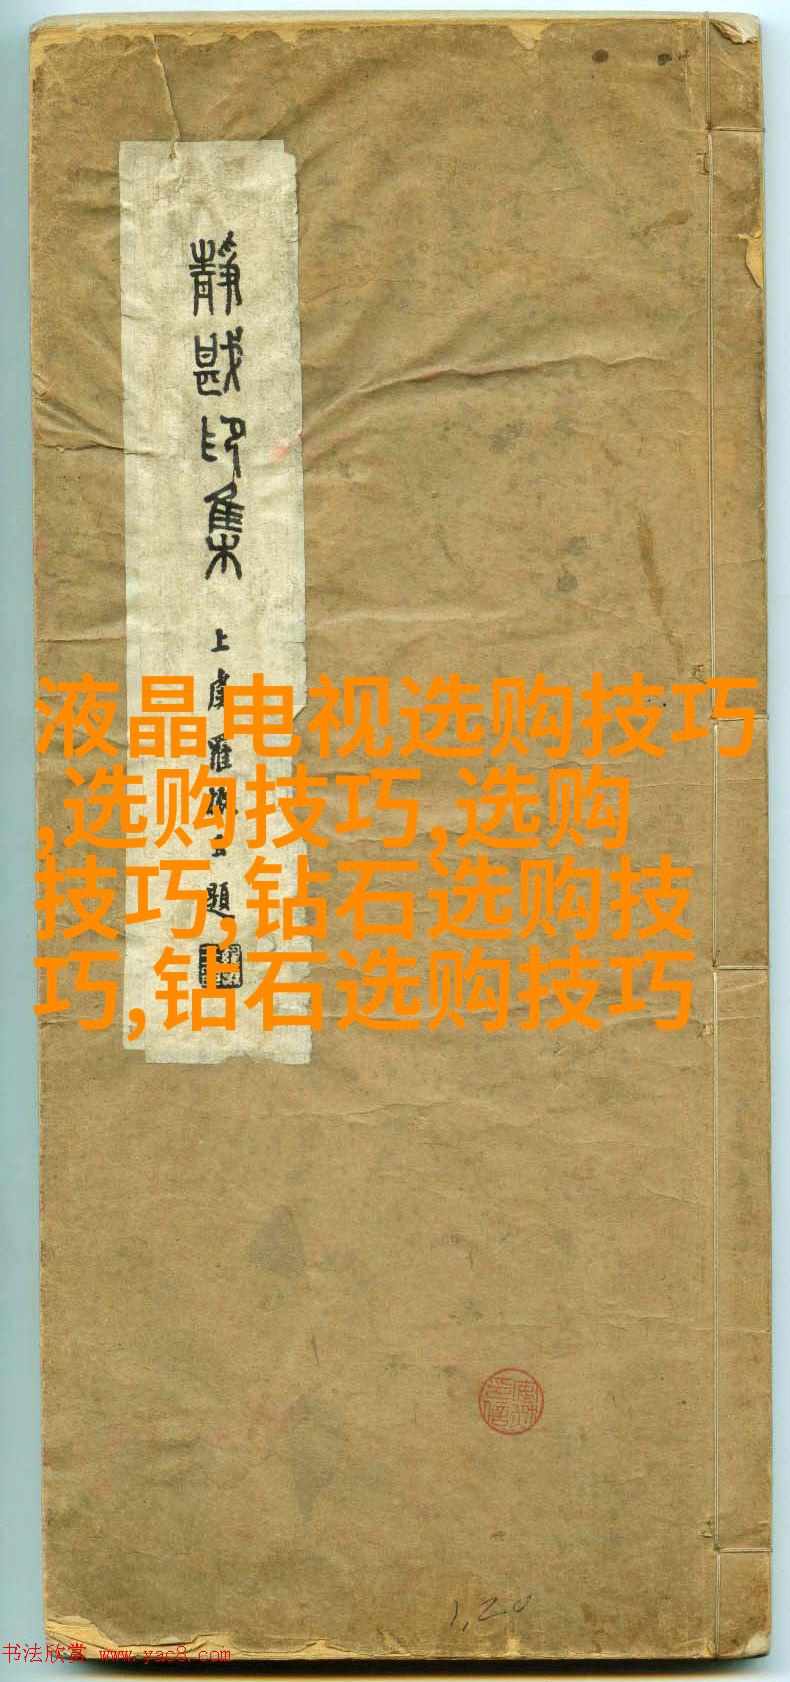 靜戡印集
上虞羅振玉題
液晶电视选购技巧
,选购技巧,选购
技巧,钻石选购技
巧,钻石选购技巧
1,20
书法欣赏 www.yac8.com